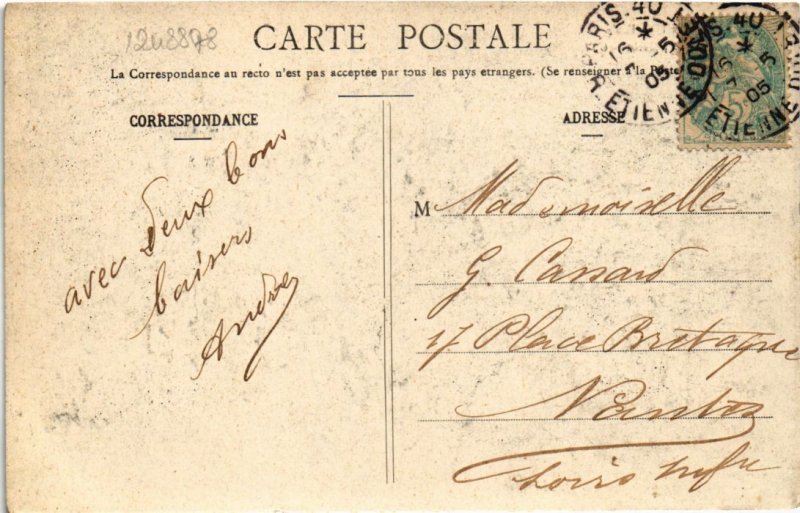 1248878
CARTE POSTALE
La Correspondance au recto n'est pas acceptée par tous les pays etrangers. (Se renseigner à la Poste
CORRESPONDANCE
ADRESSE
avec deux bons
baisers
André
M Mademoiselle
G. Cassard
17 Place Bretagne
Nantes
Loire Infre
PARIS. 40
16
5
05
ETIENNE
40
5
05
ETIENNE
5